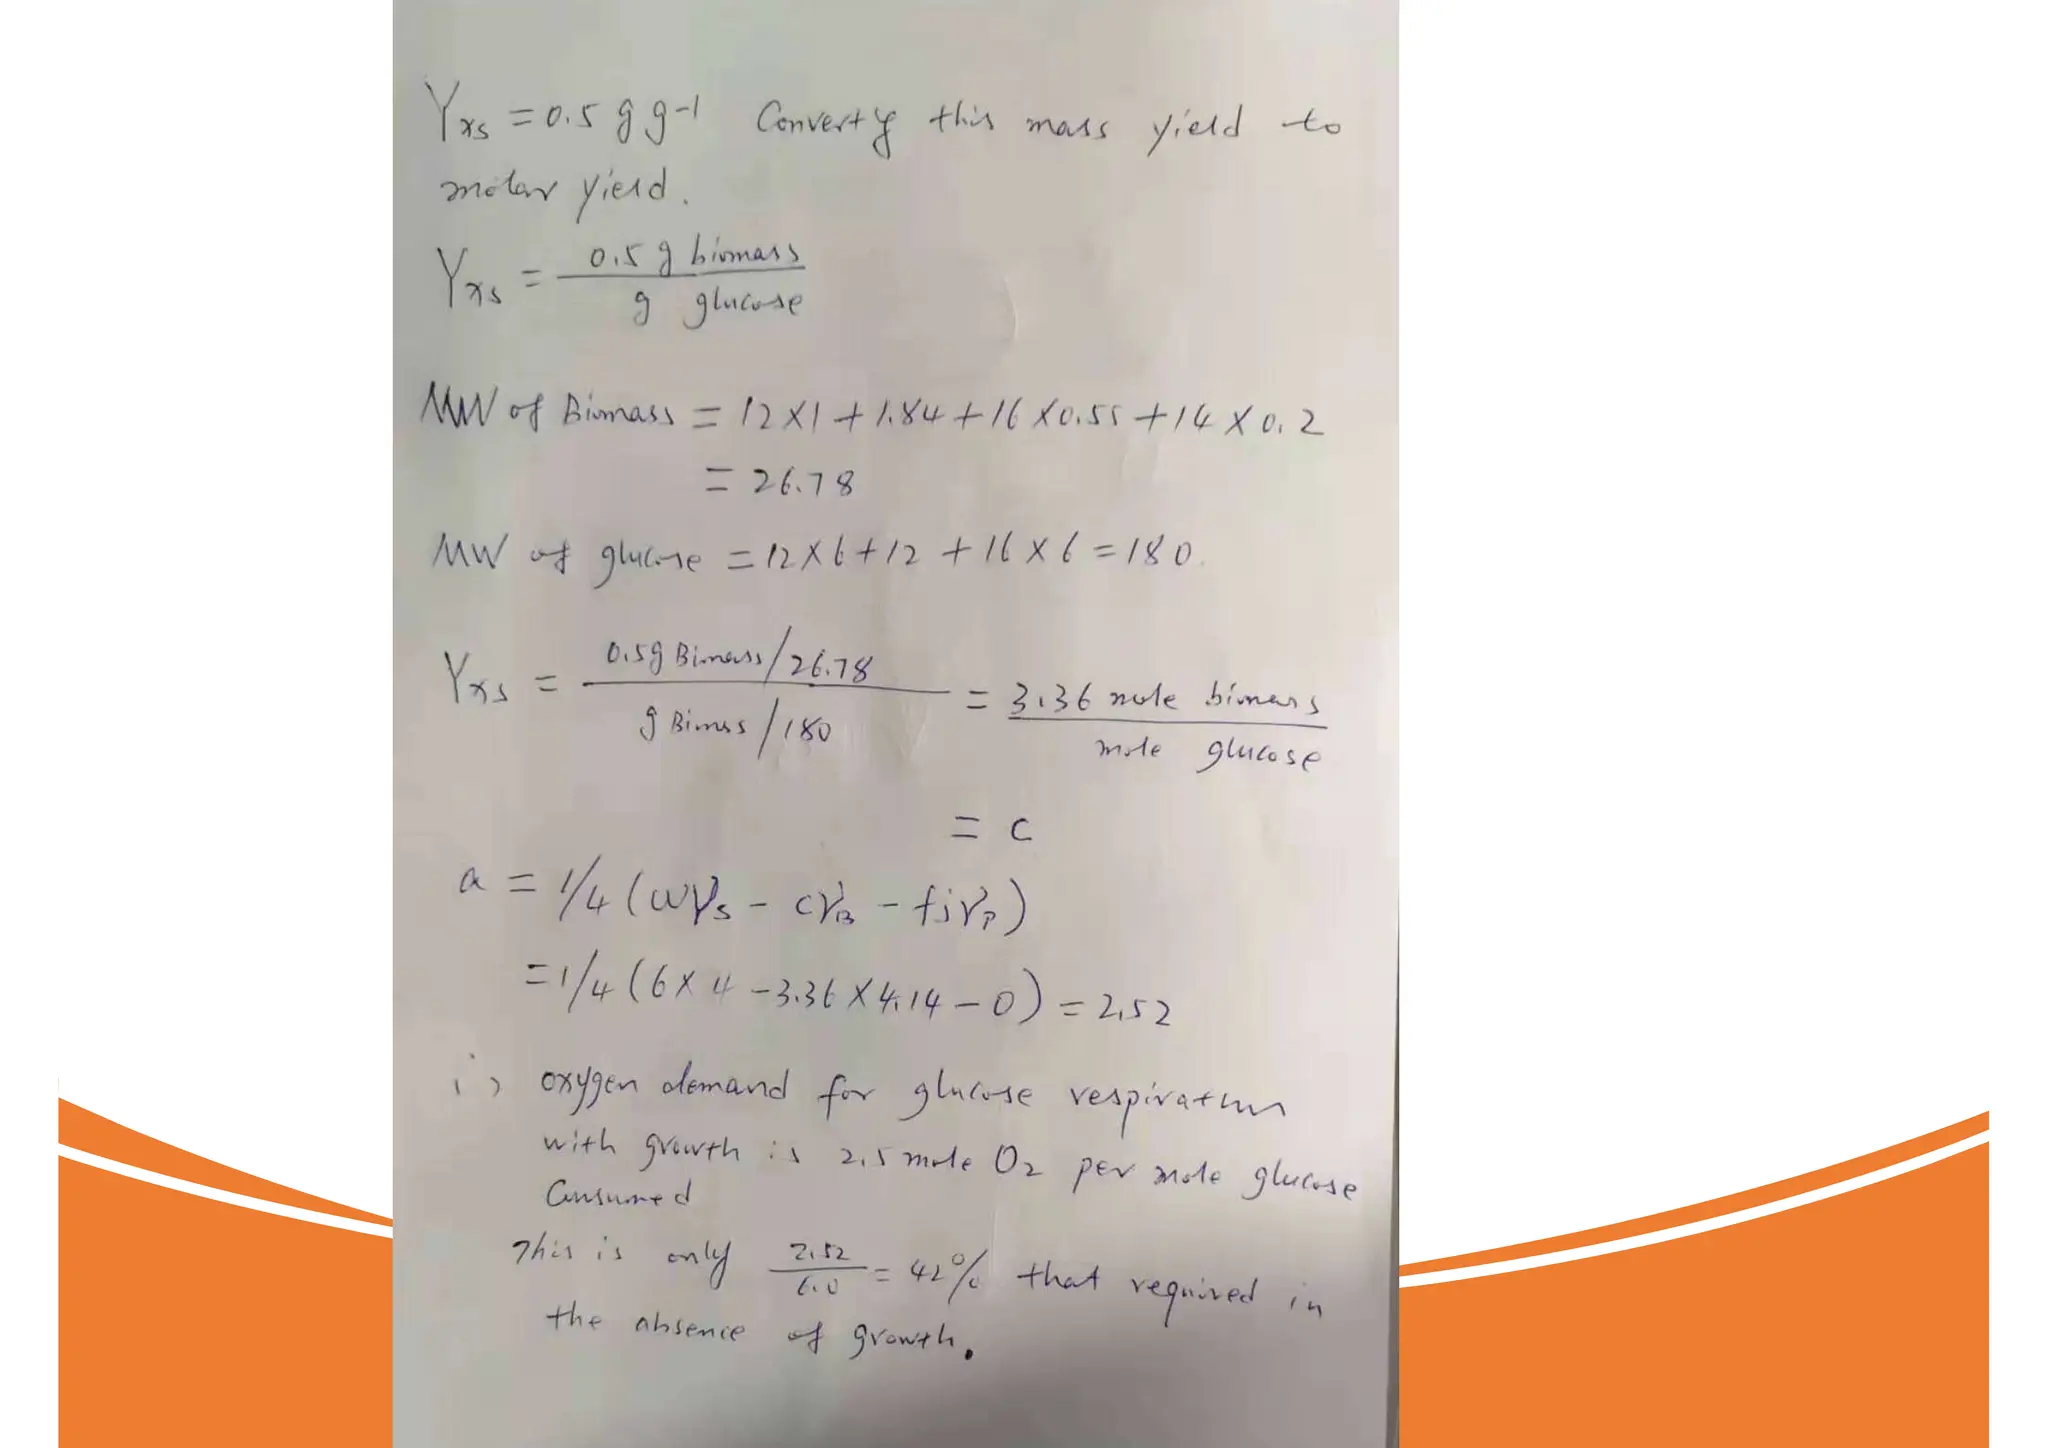 Yxs = 0.5 g g-1 Converty this mass yield to
molar yield.
Yxs = 0.5 g biomass / g glucose
MW of Biomass = 12 X 1 + 1.84 + 16 X 0.55 + 14 X 0.2
= 26.78
MW of glucose = 12 X 6 + 12 + 16 X 6 = 180.
Yxs = 0.5g Biomass/26.78 / g Biomass/180 = 3.36 mole biomass / mole glucose
= c
a = 1/4 (wγs - cγB - fjγP)
= 1/4 (6 X 4 - 3.36 X 4.14 - 0) = 2.52
i) oxygen demand for glucose respiration
with growth is 2.5 mole O2 per mole glucose
Consumed
This is only 2.52 / 6.0 = 42% that required in
the absence of growth.